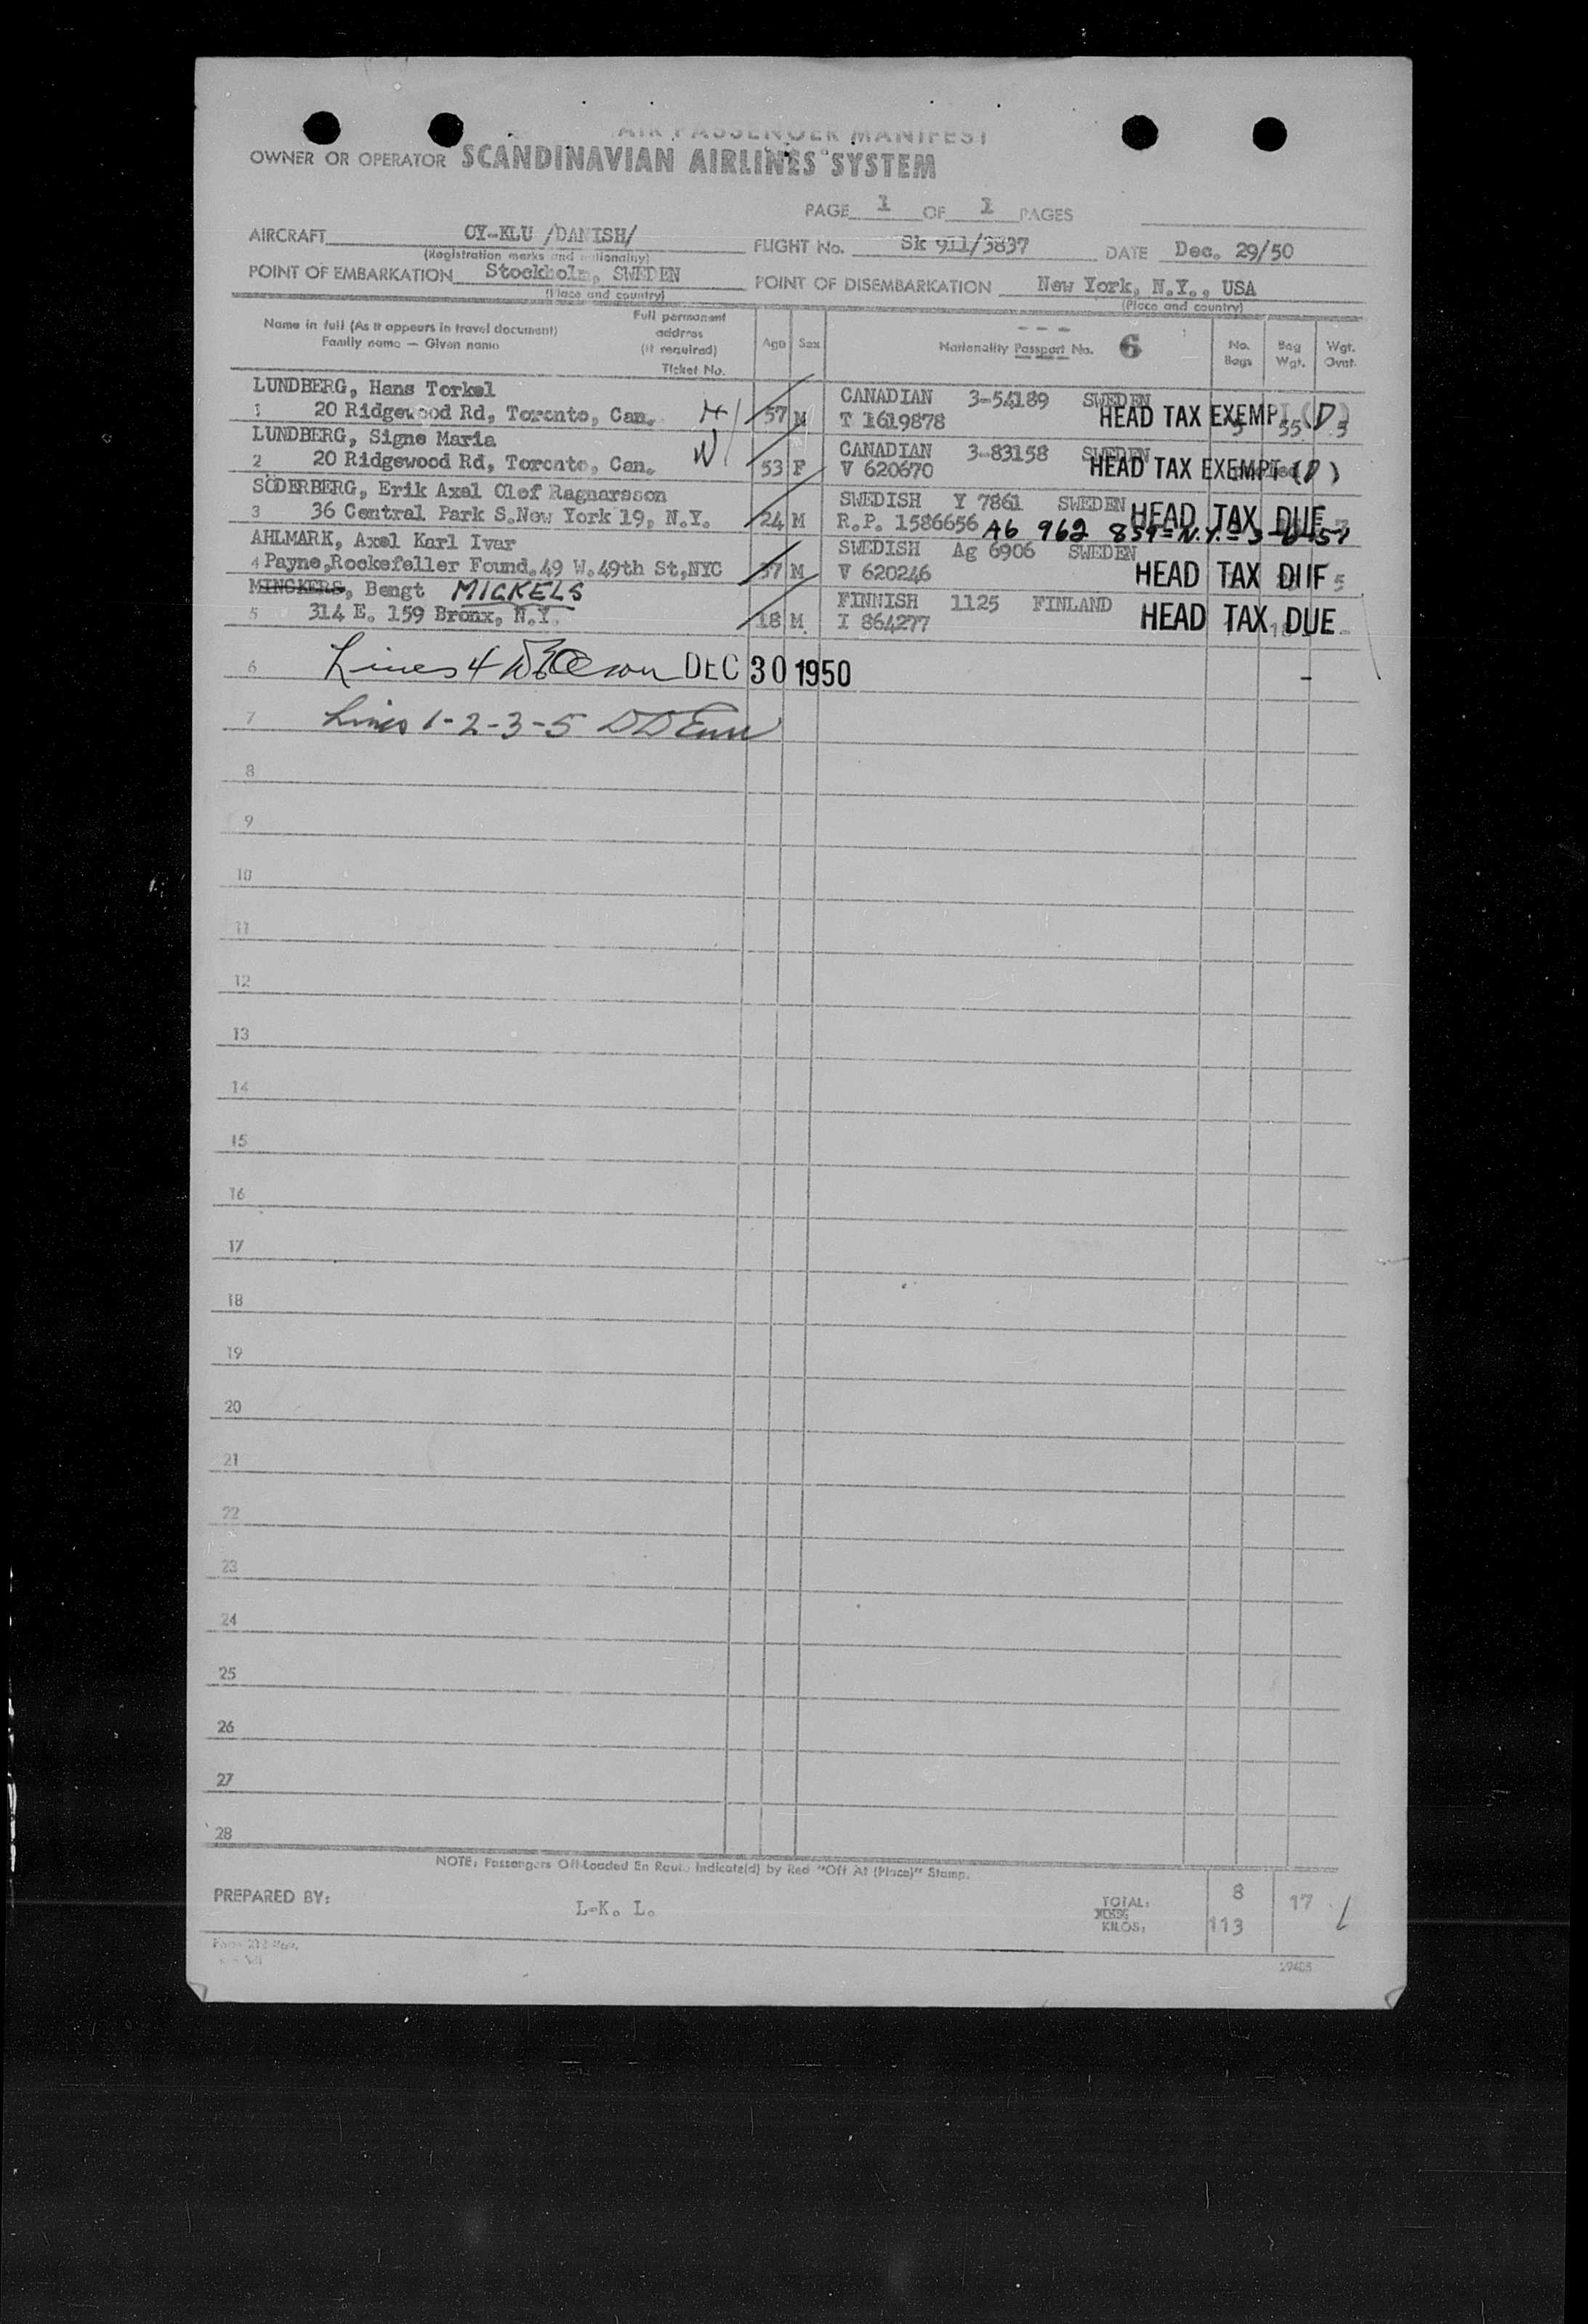 AIR PASSENGER MANIFEST
OWNER OR OPERATOR SCANDINAVIAN AIRLINES SYSTEM
PAGE 1 OF 1 PAGES
AIRCRAFT OY-KLU /DANISH/ FLIGHT No. Sk 911/3837 DATE Dec. 29/50
(Registration marks and nationality)
POINT OF EMBARKATION Stockholm, SWEDEN POINT OF DISEMBARKATION New York, N.Y., USA
(Place and country) (Place and country)
Name in full (As it appears in travel document)
Family name — Given name
Full permanent
address
(if required)
Ticket No.
Age Sex
Nationality Passport No. 6
No.
Bags
Bag
Wgt.
Wgt.
Ovwt.
LUNDBERG, Hans Torkel CANADIAN 3-54189 SWEDEN
1 20 Ridgewood Rd, Toronto, Can. H 57 M T 1619878 HEAD TAX EXEMPT (D) 3
LUNDBERG, Signe Maria CANADIAN 3-83158 SWEDEN
2 20 Ridgewood Rd, Toronto, Can. W 53 F V 620670 HEAD TAX EXEMPT (D)
SÖDERBERG, Erik Axel Olof Ragnarsson SWEDISH Y 7861 SWEDEN
3 36 Central Park S.New York 19, N.Y. 24 M R.P. 1586656 HEAD TAX DUE
A6 962 859-N.Y.-3-6-51
AHLMARK, Axel Karl Ivar SWEDISH Ag 6906 SWEDEN
4 Payne,Rockefeller Found.49 W.49th St,NYC 37 M V 620246 HEAD TAX DUE 5
MINCKERS, Bengt MICKELS FINNISH 1125 FINLAND
5 314 E. 159 Bronx, N.Y. 18 M I 864277 HEAD TAX DUE
6 Lines 4 DEC 30 1950
7 Lines 1-2-3-5
8
9
10
11
12
13
14
15
16
17
18
19
20
21
22
23
24
25
26
27
28
NOTE: Passengers Off-Loaded En Route Indicate(d) by Red "Off At (Place)" Stamp.
PREPARED BY: L-K. L. TOTAL: 8 17
KILOS: 113